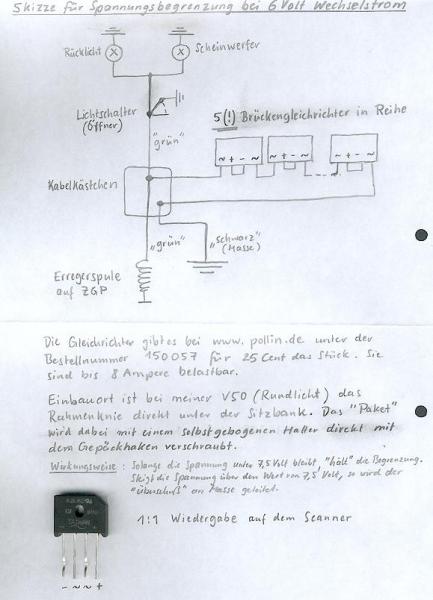 Skizze für Spannungsbegrenzung bei 6 Volt Wechselstrom
Rücklicht
Scheinwerfer
Lichtschalter
(Öffner)
5(!) Brückengleichrichter in Reihe
"grün"
~ + - ~
~ + - ~
~ + - ~
Kabelkästchen
"grün"
"schwarz"
(Masse)
Erregerspule
auf ZGP
Die Gleichrichter gibt es bei www.pollin.de unter der
Bestellnummer 150057 für 25 Cent das Stück. Sie
sind bis 8 Ampere belastbar.
Einbauort ist bei meiner V50 (Rundlicht) das
Rahmenknie direkt unter der Sitzbank. Das "Paket"
wird dabei mit einem selbstgebogenen Halter direkt mit
dem Gepäckhaken verschraubt.
Wirkungsweise: Solange die Spannung unter 7,5 Volt bleibt, "hält" die Begrenzung.
Steigt die Spannung über den Wert von 7,5 Volt, so wird der
"Überschuß" an Masse geleitet.
1:1 Wiedergabe auf dem Scanner
- ~ ~ +